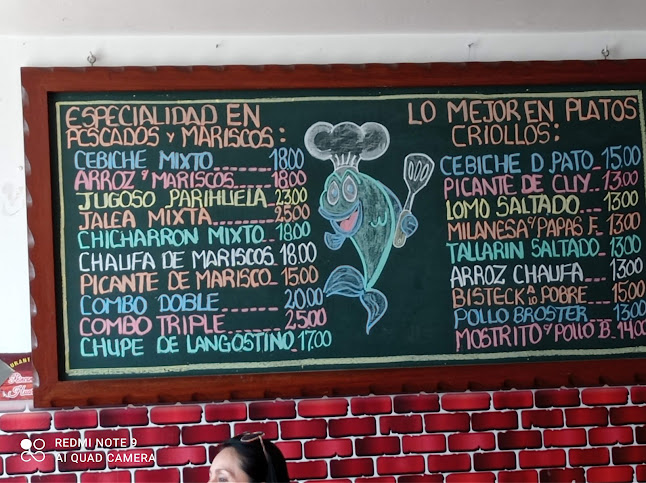 ESPECIALIDAD EN
PESCADOS Y MARISCOS:
CEBICHE MIXTO 18.00
ARROZ Y MARISCOS 18.00
JUGOSO PARIHUELA 23.00
JALEA MIXTA 25.00
CHICHARRON MIXTO 18.00
CHAUFA DE MARISCOS 18.00
PICANTE DE MARISCO 15.00
COMBO DOBLE 20.00
COMBO TRIPLE 25.00
CHUPE DE LANGOSTINO 17.00
LO MEJOR EN PLATOS
CRIOLLOS:
CEBICHE D PATO 15.00
PICANTE DE CUY 13.00
LOMO SALTADO 13.00
MILANESA Y PAPAS F. 13.00
TALLARIN SALTADO 13.00
ARROZ CHAUFA 13.00
BISTECK A LO POBRE 15.00
POLLO BROSTER 13.00
MOSTRITO Y POLLO B 14.00
REDMI NOTE 9
AI QUAD CAMERA